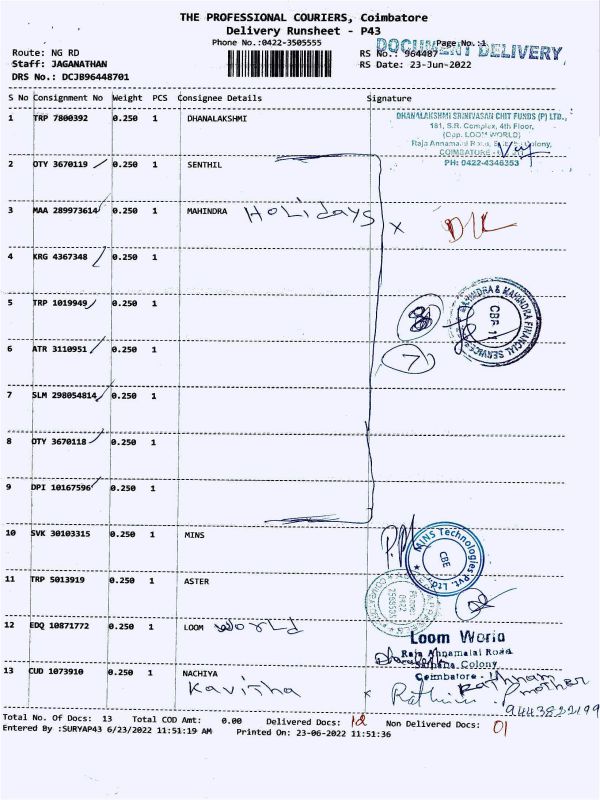 THE PROFESSIONAL COURIERS, Coimbatore
Delivery Runsheet - P43
Phone No.:0422-3505555
Page No.:1
DOCUMENT DELIVERY
Route: NG RD
RS No.: 964487
Staff: JAGANATHAN
RS Date: 23-Jun-2022
DRS No.: DCJB96448701
S No Consignment No Weight PCS Consignee Details Signature
1 TRP 7800392 0.250 1 DHANALAKSHMI
DHANALAKSHMI SRINIVASAN CHIT FUNDS (P) LTD.,
181, S.R. Complex, 4th Floor,
(Opp. LOOM WORLD)
Raja Annamalai Road, Colony,
COIMBATORE
PH: 0422-4346353
2 OTY 3670119 0.250 1 SENTHIL
3 MAA 289973614 0.250 1 MAHINDRA Holidays x
4 KRG 4367348 0.250 1
5 TRP 1019949 0.250 1
MAHINDRA & MAHINDRA FINANCIAL SERVICES
CBE
6 ATR 3110951 0.250 1
7
7 SLM 298054814 0.250 1
8 OTY 3670118 0.250 1
9 DPI 10167596 0.250 1
10 SVK 30103315 0.250 1 MINS
MINS Technologies Pvt. Ltd.
CBE
11 TRP 5013919 0.250 1 ASTER
12 EDQ 10871772 0.250 1 LOOM world
Loom World
Raja Annamalai Road
Colony
Coimbatore -
13 CUD 1073910 0.250 1 NACHIYA
Kavitha x
Rathnam
mother
9443822199
Total No. Of Docs: 13 Total COD Amt: 0.00 Delivered Docs: 12 Non Delivered Docs: 01
Entered By :SURYAP43 6/23/2022 11:51:19 AM Printed On: 23-06-2022 11:51:36